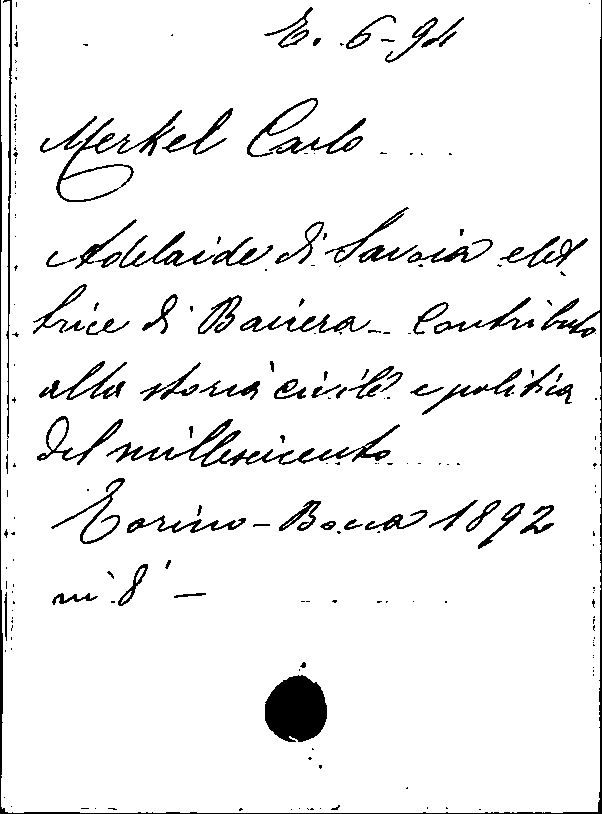 E. 6-94
Merkel Carlo
Adelaide di Savoia elet
trice di Baviera - Contributo
alla storia civile e politica
del milleseicento
Torino - Bocca 1892
in 8° -